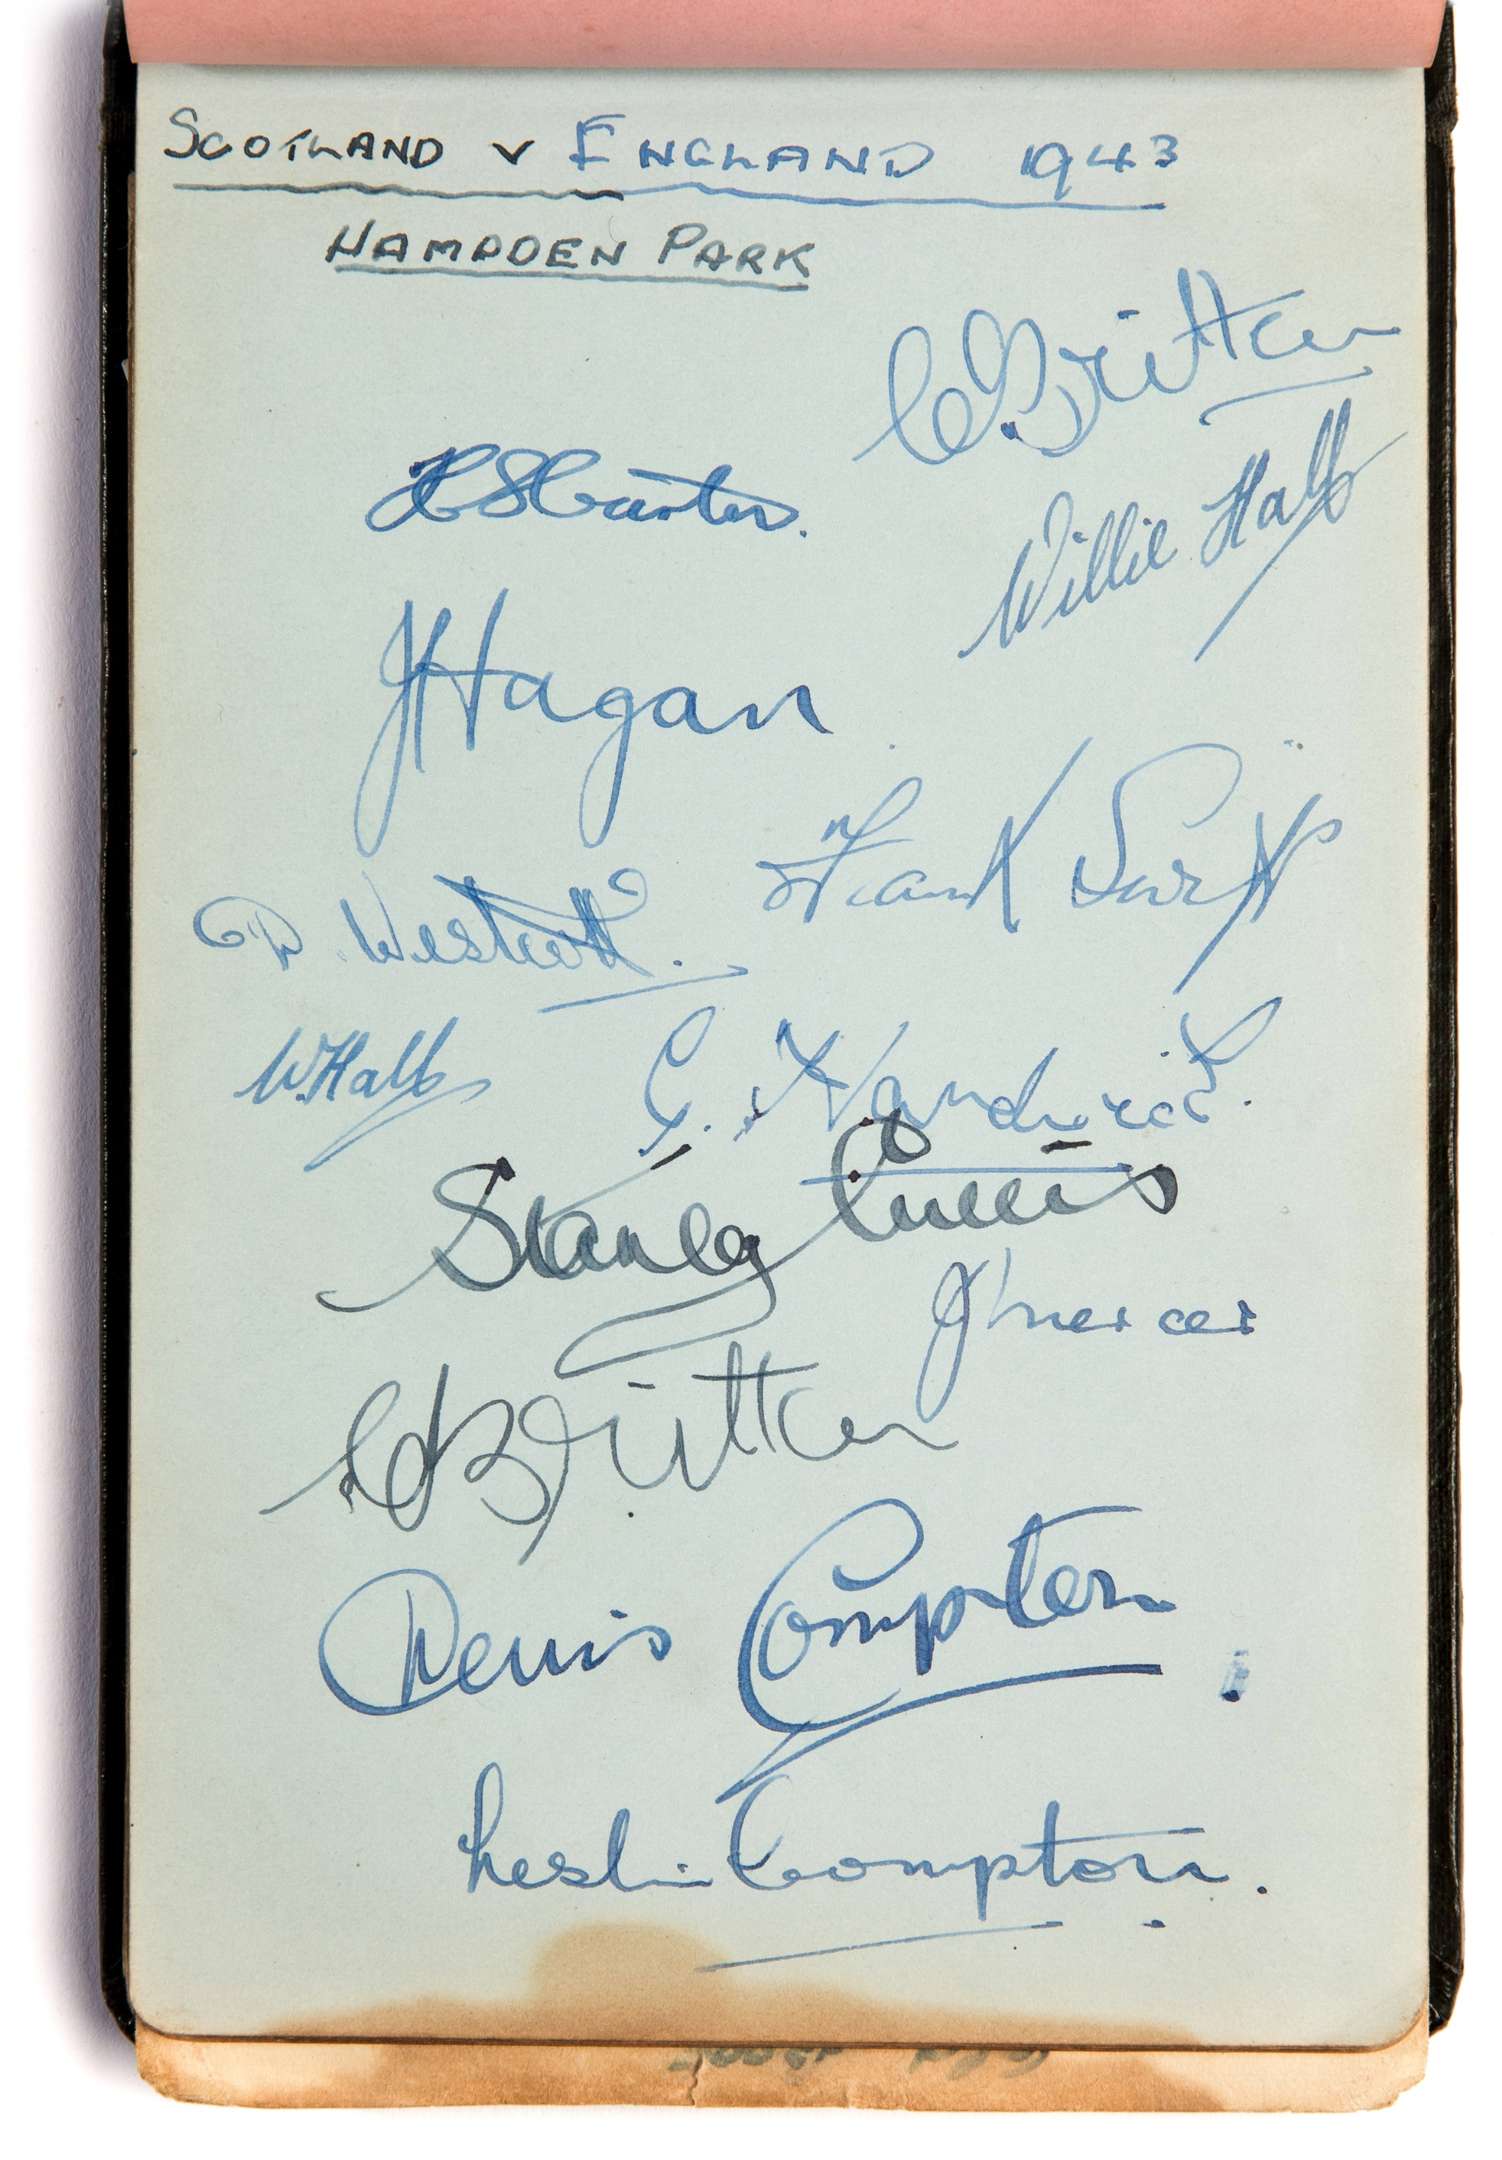 SCOTLAND v ENGLAND 1943
HAMPDEN PARK
C Britton
H S Carter.
Willie Hall
J Hagan
Frank Swift
D. Westcott.
W. Hall
G. Hardwick.
Stanley Cullis
J Mercer
C Britton
Denis Compton
Leslie Compton.